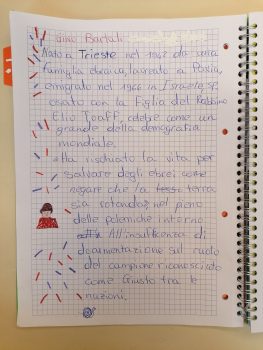 Gino Bartali
Nato a Trieste nel 1942 da una
famiglia ebraica, laureato a Pavia,
emigrato nel 1966 in Israele sp
osato con la Figlia del Rabbino
Elio Toaff, celebre come un
grande della demografia
mondiale.
Ha rischiato la vita per
salvare degli ebrei come
negare che la terra
sia rotonda nel pieno
delle polemiche intorno
All'insufficenza di
documentazione sul ruolo
del campione riconosciuto
come Giusto fra le
nazioni.